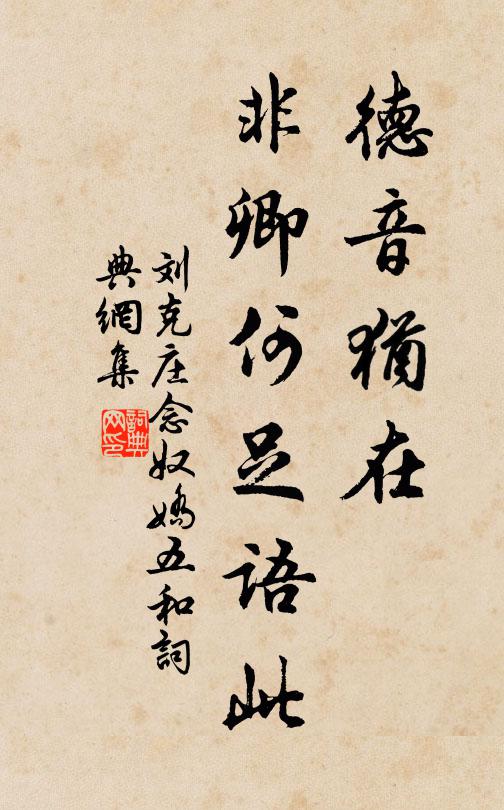 德音猶在
非卿何足語此
刘克庄念奴嬌五和詞
典網集
詞典
网印